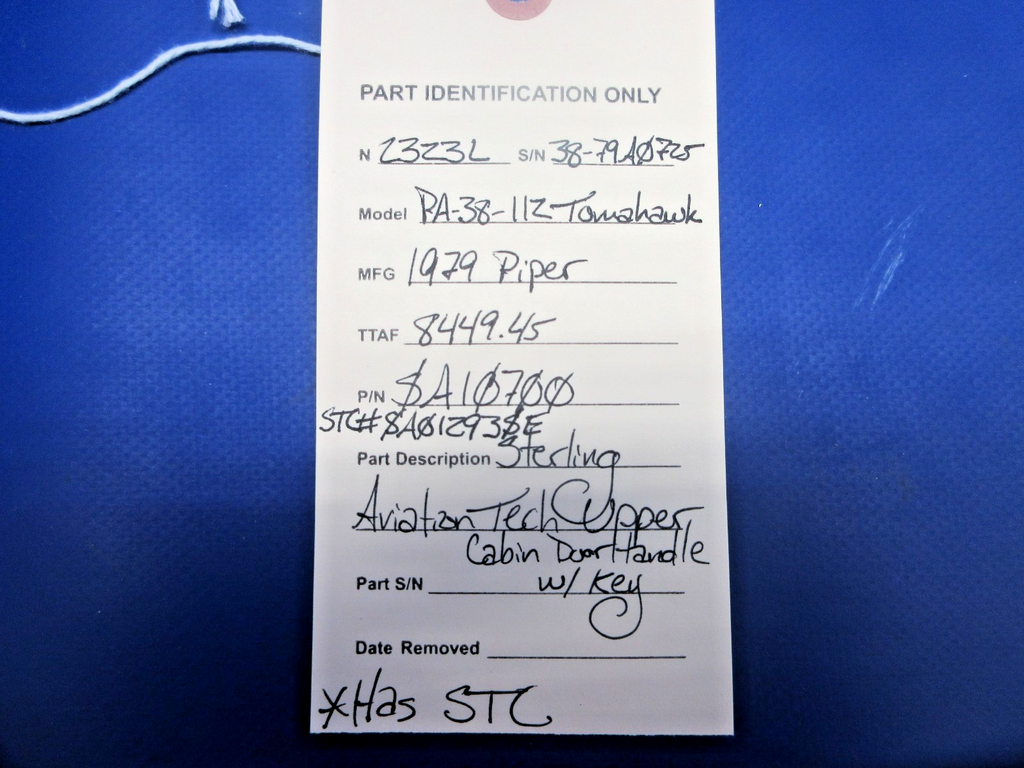 PART IDENTIFICATION ONLY
N 2323L S/N 38-79A0725
Model PA-38-112 Tomahawk
MFG 1979 Piper
TTAF 8449.45
P/N SA10700
STC# SA01293SE
Part Description Sterling
Aviation Tech Upper
Cabin Door Handle
Part S/N w/ Key
Date Removed
*Has STC